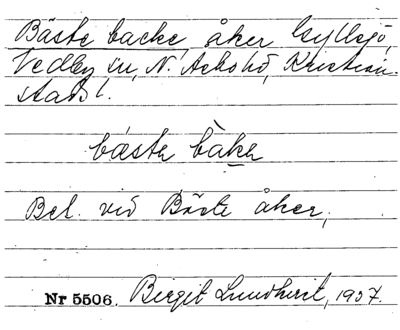 Bäste backe, åker, Gyllsjö,
Vedby sn, N. Åsbo hd, Kristian-
stads l.
bæstə bàkə
Bel. vid Bäste åker,
Nr 5506. Birgit Lundkvist, 1937.